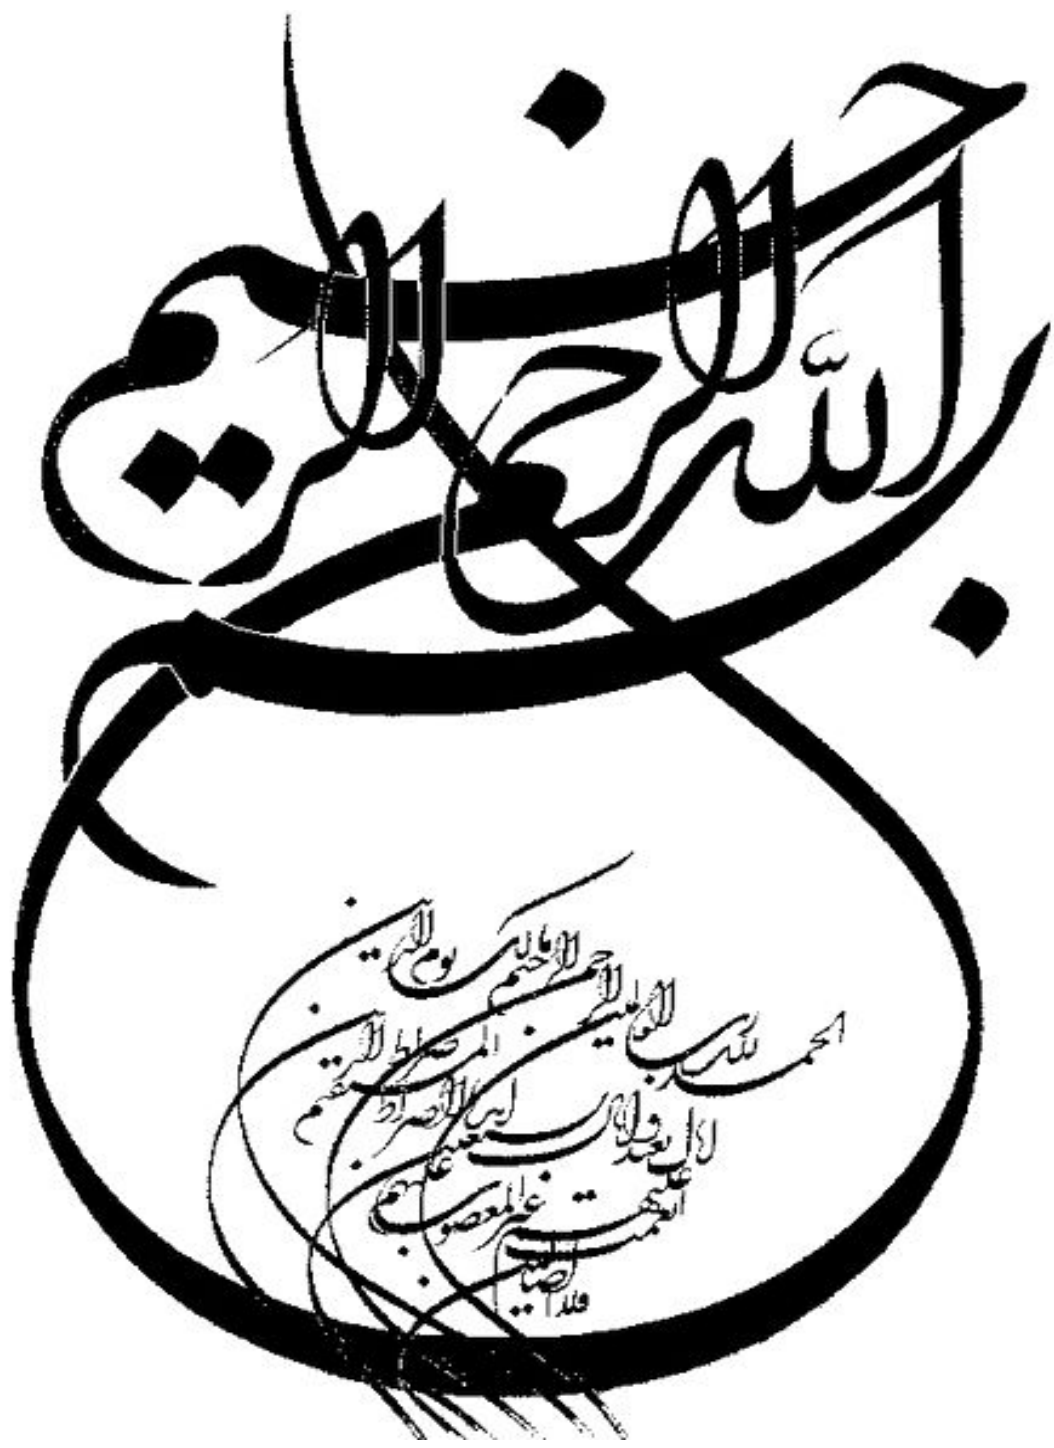 بسم الله الرحمن الرحيم
الحمد لله رب العالمين
الرحمن الرحيم
مالك يوم الدين
اياك نعبد واياك نستعين
اهدنا الصراط المستقيم
صراط الذين
انعمت عليهم غير المغضوب عليهم
ولا الضالين